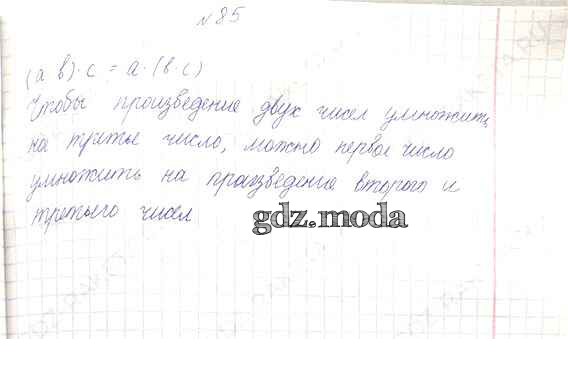 №85
(a b)·c = a·(b·c)
Чтобы произведение двух чисел умножить
на третье число, можно первое число
умножить на произведение второго и
третьего чисел
gdz.moda